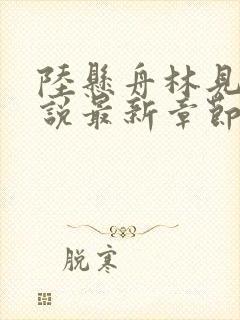 陸懸舟林見
說最新章節
脱寒